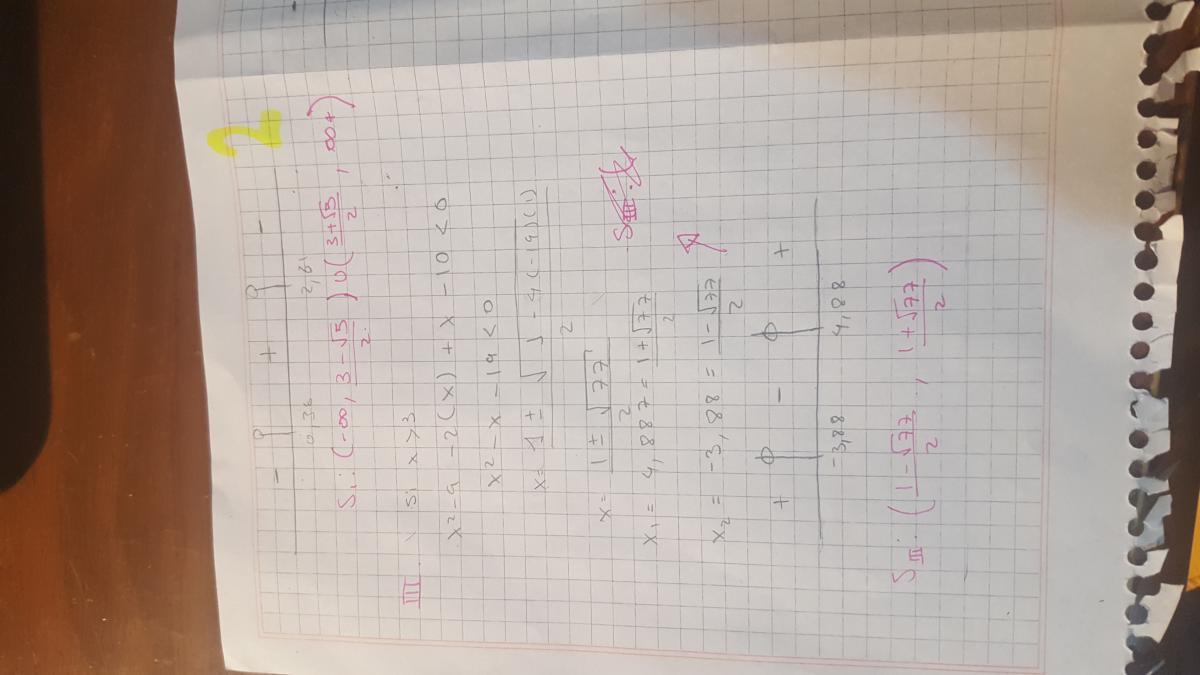 2
- + -
0,36 2,61
Si: (-∞, 3-√5/2) ∪ (3+√5/2, ∞+)
III. Si x>3
x²-9 -2(x) + x -10 < 0
x² - x - 19 < 0
x = 1 ± √1 - 4(-19)(1) / 2
x = 1 ± √77 / 2
x₁ = 4,887 = 1+√77 / 2
x₂ = -3,88 = 1-√77 / 2
+ - +
-3,88 4,88
S III: (1-√77/2 , 1+√77/2)